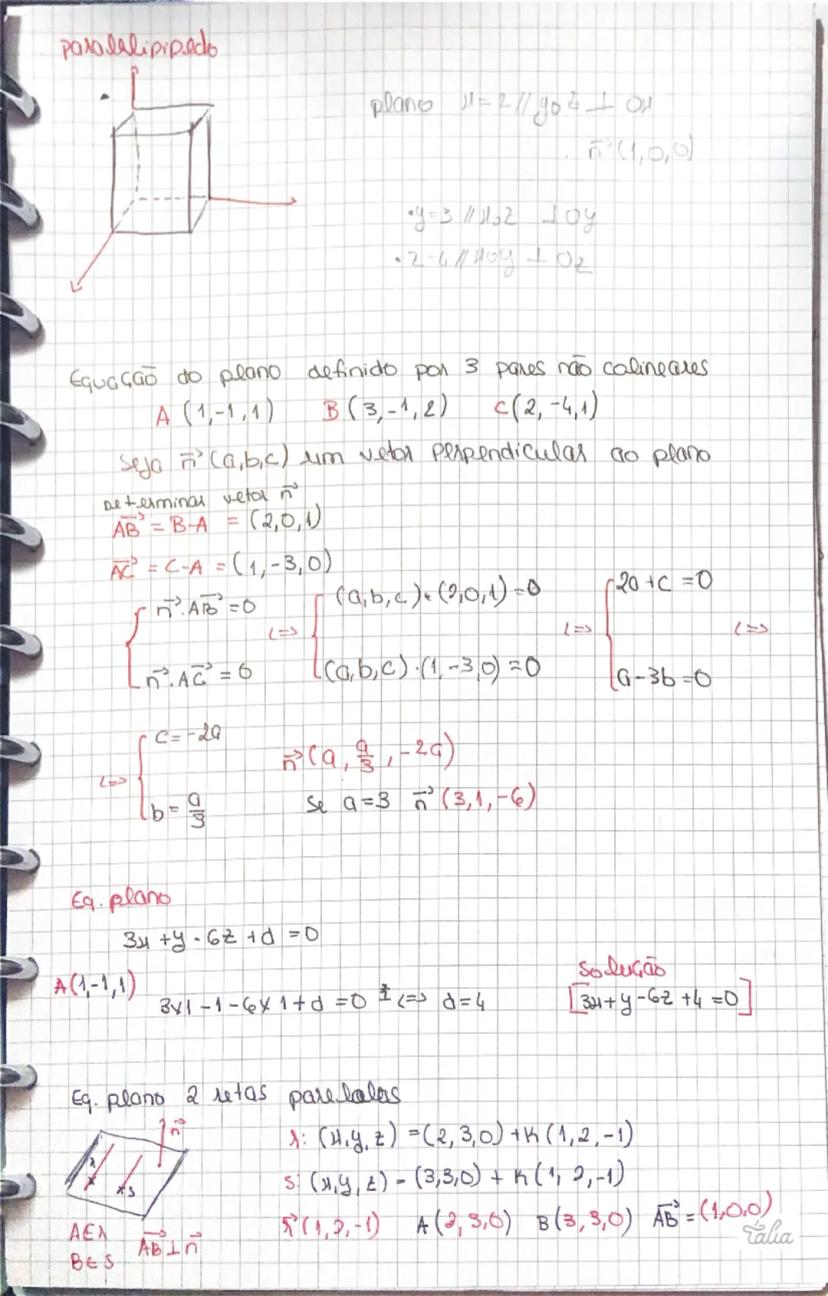 paralelipipedo
plano x=2 // yoz ⊥ ox
n⃗ (1,0,0)
• y=3 // xoz ⊥ oy
• z=4 // xoy ⊥ oz
Equação do plano definido por 3 pares não colineares
A (1,-1,1) B (3,-1,2) C (2,-4,1)
Seja n⃗ (a,b,c) um vetor perpendicular ao plano
Determinar vetor n⃗
AB⃗ = B-A = (2,0,1)
AC⃗ = C-A = (1,-3,0)
{ n⃗.AB⃗=0 <=> { (a,b,c).(2,0,1)=0 <=> { 2a+c=0 <=>
n⃗.AC⃗=0 (a,b,c).(1,-3,0)=0 a-3b=0
<=> { c=-2a n⃗ (a, a/3, -2a)
b=a/3 se a=3 n⃗ (3,1,-6)
Eq. plano
3x+y-6z+d=0
Solução
A(1,-1,1) 3x1-1-6x1+d=0 <=> d=4 [3x+y-6z+4=0]
Eq. plano 2 retas parelalas
n⃗ r: (x,y,z)=(2,3,0)+k(1,2,-1)
r s s: (x,y,z)=(3,3,0)+k(1,2,-1)
r⃗ (1,2,-1) A(2,3,0) B(3,3,0) AB⃗=(1,0,0)
A∈r AB⃗⊥n⃗ Tália
B∈s